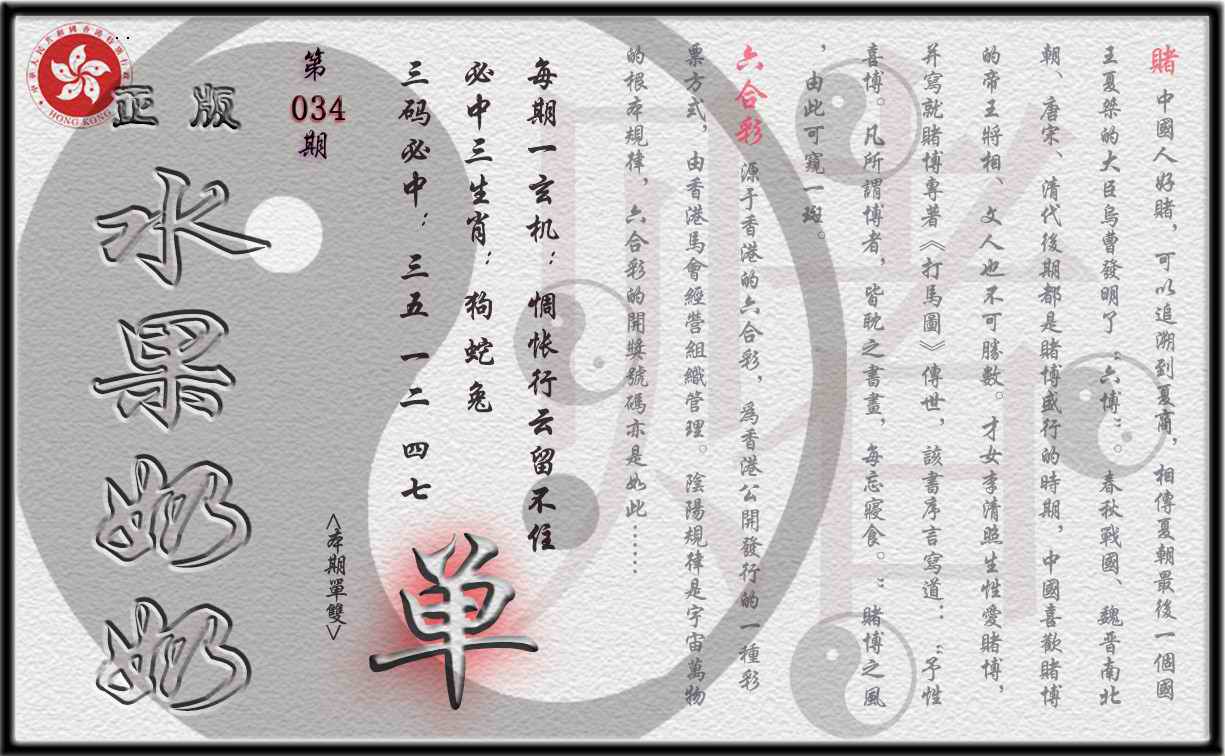 賭 中國人好賭，可以追溯到夏商，相傳夏朝最後一個國
王夏桀的大臣烏曹發明了“六博”。春秋戰國、魏晋南北
朝、唐宋、清代後期都是賭博盛行的時期，中國喜歡賭博
的帝王將相、文人也不可勝數。才女李清照生性愛賭博，
并寫就賭博專著《打馬圖》傳世，該書序言寫道：“予性
喜博。凡所謂博者，皆耽之書畫，每忘寢食。”賭博之風
，由此可窺一斑。
六合彩 源于香港的六合彩，爲香港公開發行的一種彩
票方式，由香港馬會經營組織管理。陰陽規律是宇宙萬物
的根本規律，六合彩的開獎號碼亦是如此……
每期一玄机：惆怅行云留不住
必中三生肖：狗蛇兔
三码必中：三五 一二 四七
第
034
期
<本期單雙>
单
正版
水果奶奶
中華人民共和國香港特別行政區
HONG KONG